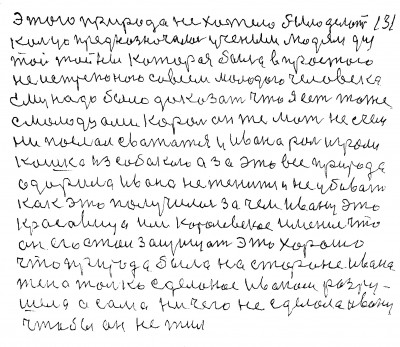 этого природа не хотела было делат 131
колцо предназночалос ученым людям дц
той тайни которая была в простого
не истрепоного совсем молодого человека
ему надо было доказат что я ест тоже
с молодцами король он те мог не счеи
ни послал сватался и Ивана рол играли
кошка из собакаю а за это все природа
одорила Ивана не женит и не убиват
как это получилос зачем Ивану это
красовица и им королевское имение что
он его стои защищат это хорошо
что природа была на стороне Ивана
жена толко сделаное Иваном разру-
шела а сама ничего не сделала Ивану
чтобы он не жил